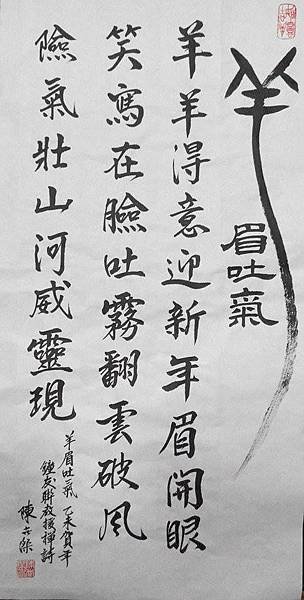 羊
眉吐氣
羊羊得意迎新年眉開眼
笑寫在臉吐霧翻雲破風
險氣壯山河威靈現
羊眉吐氣乙未賀年